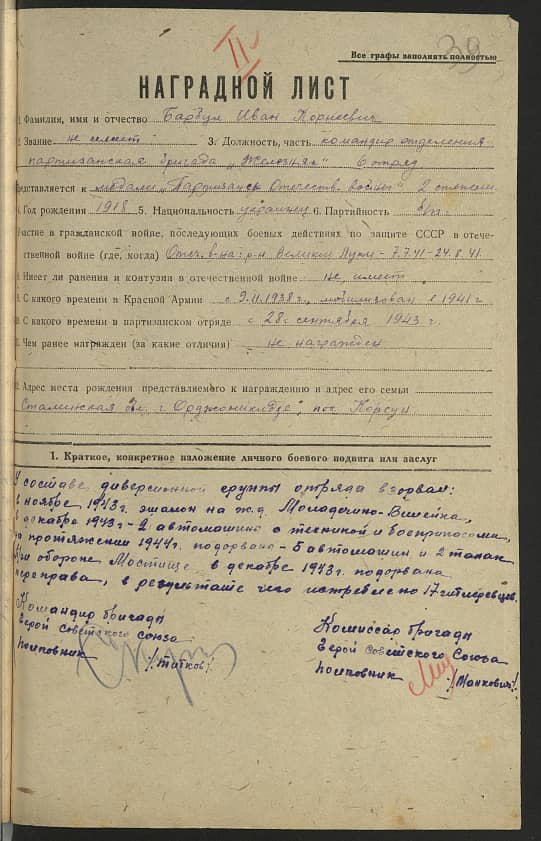 II
39
Все графы заполнять полностью
НАГРАДНОЙ ЛИСТ
1. Фамилия, имя и отчество Барбул Иван Корнеевич
2. Звание не имеет 3. Должность, часть командир отделения
партизанская бригада „Железняк" 6 отряд
Представляется к медали „Партизану Отечеств. войны" 2 степени
4. Год рождения 1918 5. Национальность украинец 6. Партийность б/п
Участие в гражданской войне, последующих боевых действиях по защите СССР в отече-
ственной войне (где, когда) р-н Великие Луки - 7.7.41-24.8.41
8. Имеет ли ранения и контузия в отечественной войне не имеет
9. С какого времени в Красной Армии с 9.11.1938 г., мобилизован в 1941 г
10. С какого времени в партизанском отряде с 28 сентября 1943 г.
11. Чем ранее награжден (за какие отличия) не награжден
12. Адрес места рождения представляемого к награждению и адрес его семьи
Сталинская обл, г. Орджоникидзе, пос Корсун
1. Краткое, конкретное изложение личного боевого подвига или заслуг
В составе диверсионной группы отряда взорвал:
в ноябре 1943 г. эшелон на ж.д. Молодечно-Вилейка,
в декабре 1943 г - 2 автомашины с техникой и боеприпасами,
на протяжении 1944 г. подорвано - 5 автомашин и 2 танка
При обороне Мостище, в декабре 1943 г. подорвана
переправа, в результате чего истреблено 17 гитлеровцев.
Командир бригады
Герой Советского Союза
полковник /Титков/
Комиссар бригады
Герой Советского Союза
полковник /Манкович/